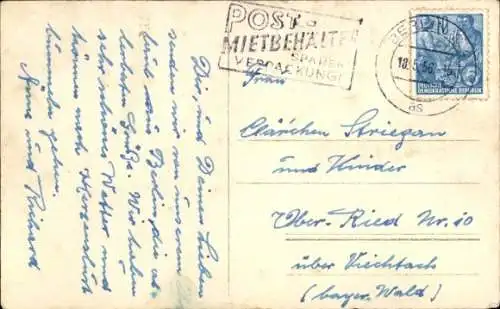 POST-
MIETBEHÄLTER
SPAREN
VERPACKUNG!
BERLIN
18.5.56
as
DEMOKRATISCHE REPUBLIK
Dir und Deinen Lieben
senden wir von unserem
aus Berlin die
Grüße. Wir haben
sehr schönes Wetter und
können nach Herzenslust
bummeln gehen.
und Richard
Frau
Clärchen Striegan
und Kinder
Ober-Ried Nr. 10
über Viechtach
(bayer. Wald)